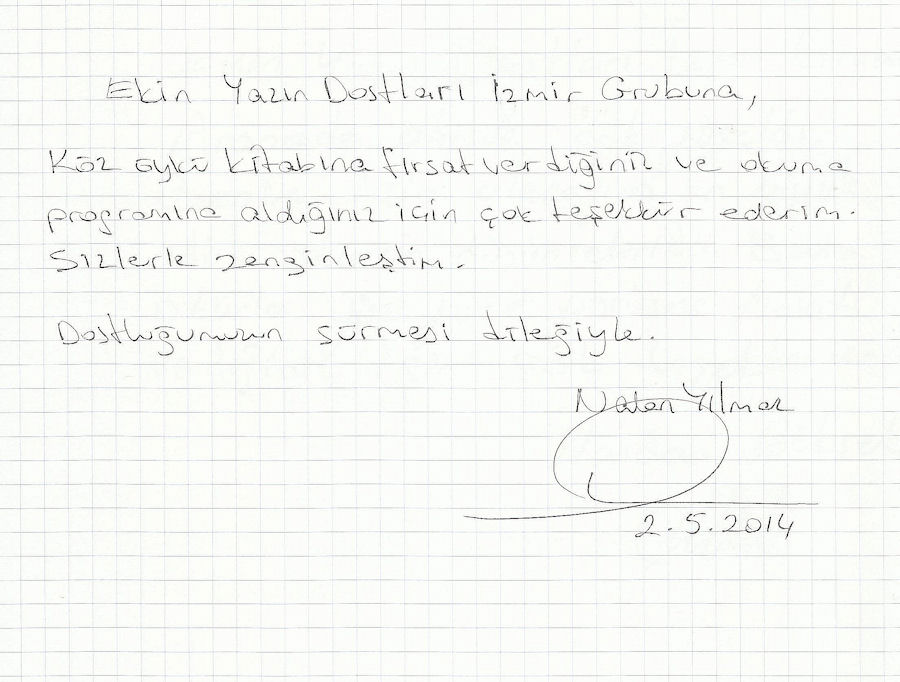 Ekin Yazın Dostları İzmir Grubuna,
Köz öykü kitabına fırsat verdiğiniz ve okuma
programına aldığınız için çok teşekkür ederim.
Sizlerle zenginleştim.
Dostluğumuzun sürmesi dileğiyle.
Natan Yılmaz
2.5.2014